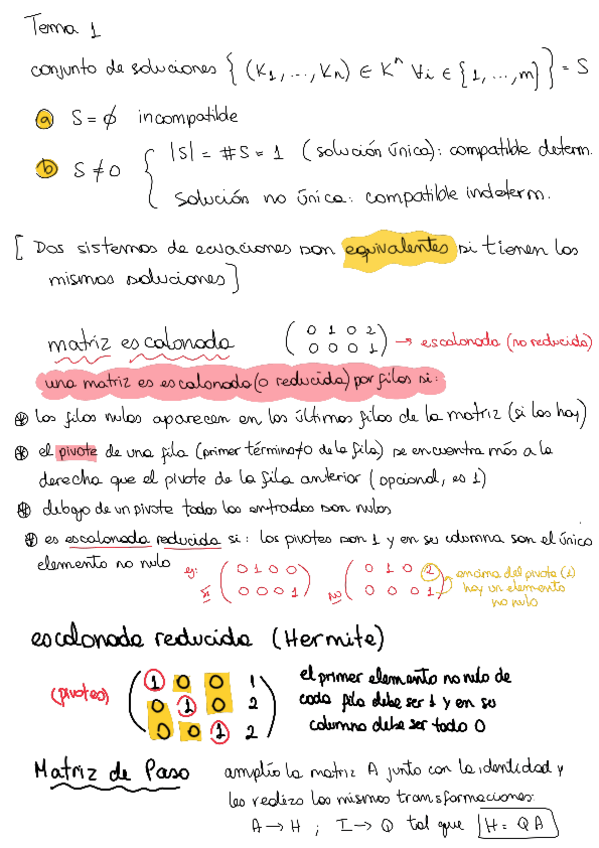 Tema 1
conjunto de soluciones { (K1, ..., Kn) ∈ Kⁿ ∀i ∈ {1, ..., m} } = S
a S = ∅ incompatible
b S ≠ 0 { |S| = #S = 1 (solución única): compatible determ.
solución no única: compatible indeterm.
[ Dos sistemas de ecuaciones son equivalentes si tienen las
mismas soluciones ]
matriz escalonada ( 0 1 0 2 → escalonada (no reducida)
0 0 0 1 )
una matriz es escalonada (o reducida) por filas si:
* las filas nulas aparecen en las últimas filas de la matriz (si las hay)
* el pivote de una fila (primer término ≠ 0 de la fila) se encuentra más a la
derecha que el pivote de la fila anterior (opcional, es 1)
* debajo de un pivote todas las entradas son nulas
* es escalonada reducida si: los pivotes son 1 y en su columna son el único
elemento no nulo eg: si ( 0 1 0 0 no ( 0 1 0 2 encima del pivote (1)
0 0 0 1 ) 0 0 0 1 ) hay un elemento
no nulo
escalonada reducida (Hermite)
(pivotes) ( 1 0 0 1 el primer elemento no nulo de
0 1 0 2 cada fila debe ser 1 y en su
0 0 1 2 ) columna debe ser todo 0
Matriz de Paso amplío la matriz A junto con la identidad y
les realizo las mismas transformaciones:
A → H ; I → Q tal que H = QA